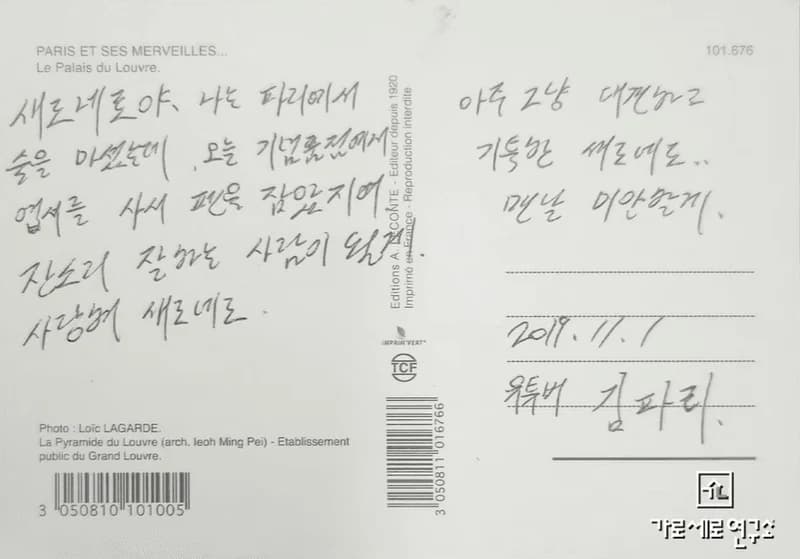 PARIS ET SES MERVEILLES...
Le Palais du Louvre.
101.676
새로네로야, 나는 파리에서
술을 마셨는데, 오늘 기념품점에서
엽서를 사서 펜을 잡았지여
잔소리 잘하는 사람이 될게!
사랑혀 새로네로.
아주 그냥 대견하고
기특한 새로네로..
맨날 미안할게.
2019.11.1
유투버 김파리.
Editions A. LECONTE - Editeur depuis 1920
Imprimé en France - Reproduction interdite
IMPRIM'VERT
TCF
Photo : Loïc LAGARDE.
La Pyramide du Louvre (arch. Ieoh Ming Pei) - Etablissement
public du Grand Louvre.
3 050810 101005
3 050811 016766
가로세로연구소